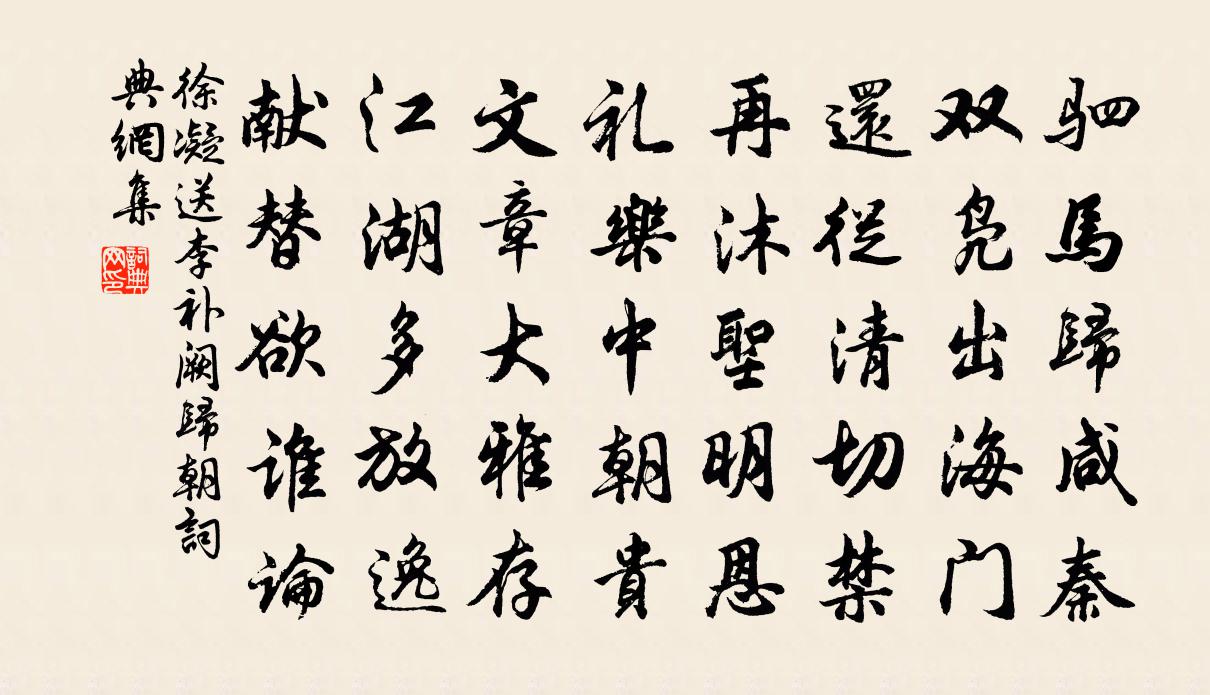 驷馬歸咸秦
双凫出海门
還從清切禁
再沐聖明恩
礼樂中朝貴
文章大雅存
江湖多放逸
献替欲谁論
徐凝送李补阙歸朝詞
典網集
詞典
网印